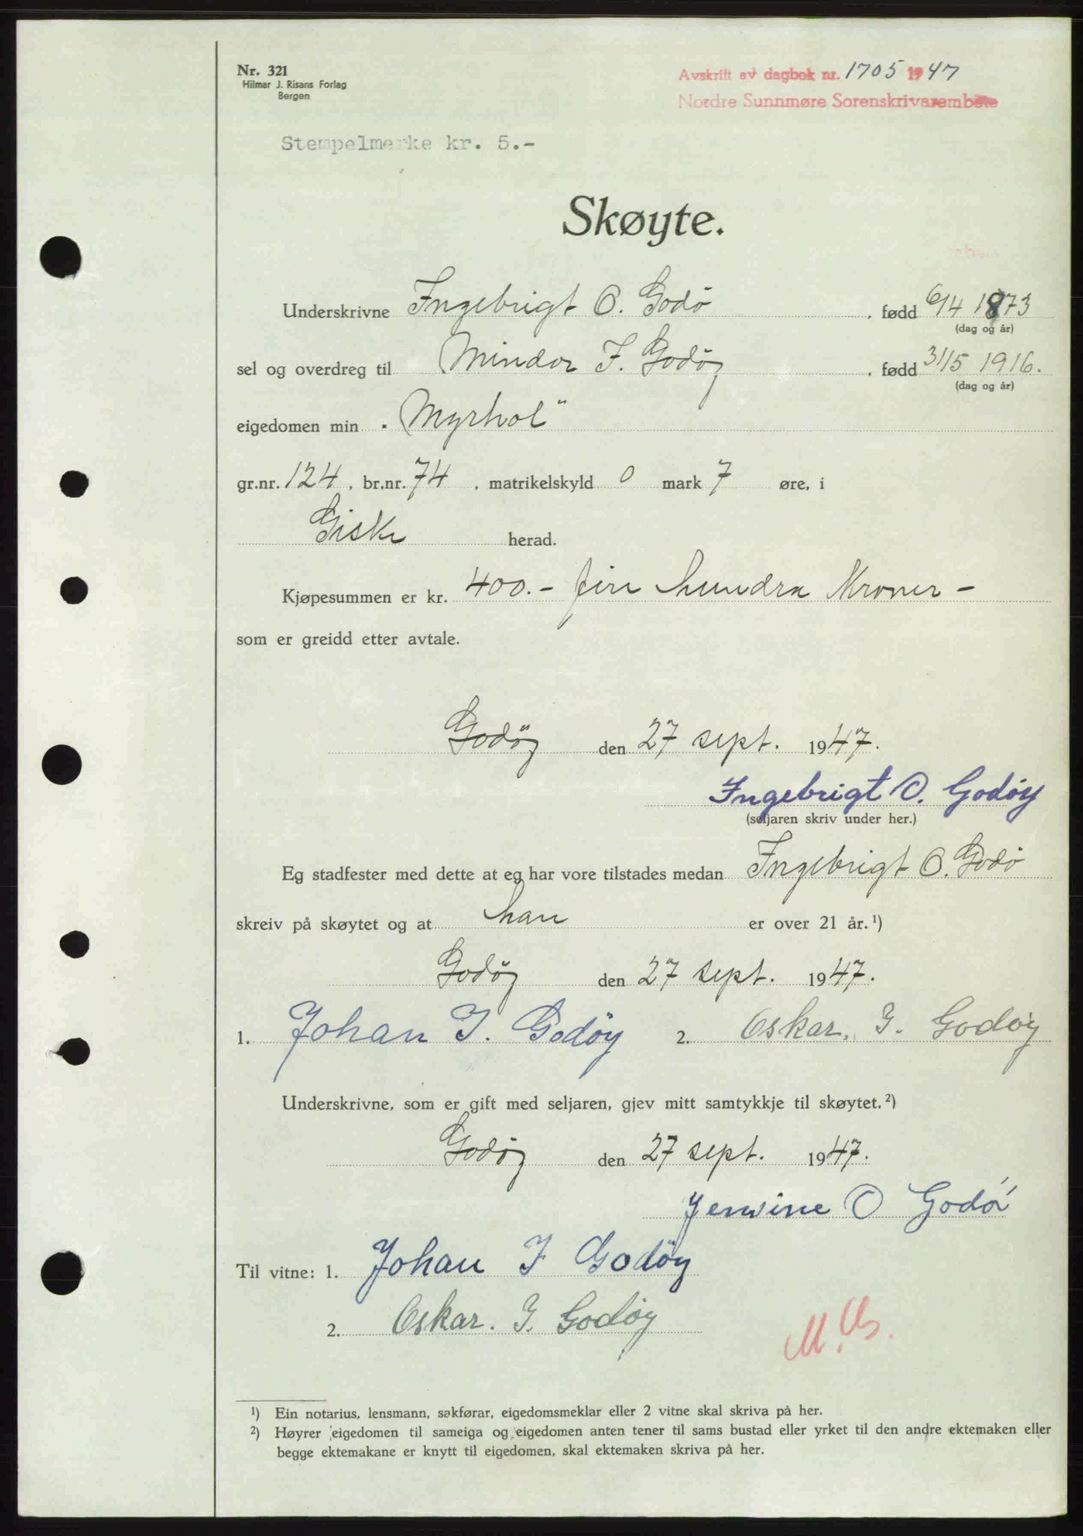 Nr. 321
Hilmar J. Risans Forlag
Bergen
Avskrift av dagbok nr. 1705 1947
Nordre Sunnmøre Sorenskrivarembete
Stempelmerke kr. 5.-
Skøyte.
Underskrivne Ingebrigt O. Godø, fødd 6/4 1873
(dag og år)
sel og overdreg til Mindor I. Godøy, fødd 31/5 1916.
(dag og år)
eigedomen min „Myrhol"
gr.nr. 124, br.nr. 74, matrikelskyld 0 mark 7 øre, i
Giske herad.
Kjøpesummen er kr. 400.- fire hundra Kroner -
som er greidd etter avtale.
Godøy den 27 sept. 1947.
Ingebrigt O. Godøy
(seljaren skriv under her.)
Eg stadfester med dette at eg har vore tilstades medan Ingebrigt O. Godø
skreiv på skøytet og at han er over 21 år.¹)
Godøy den 27 sept. 1947.
1. Johan I. Godøy 2. Oskar. I. Godøy
Underskrivne, som er gift med seljaren, gjev mitt samtykkje til skøytet.²)
Godøy den 27 sept. 1947.
Jenwine O Godø
Til vitne: 1. Johan I Godøy
2. Oskar. I. Godøy
¹) Ein notarius, lensmann, sakførar, eigedomsmeklar eller 2 vitne skal skriva på her.
²) Høyrer eigedomen til sameiga og eigedomen anten tener til sams bustad eller yrket til den andre ektemaken eller
begge ektemakane er knytt til eigedomen, skal ektemaken skriva på her.